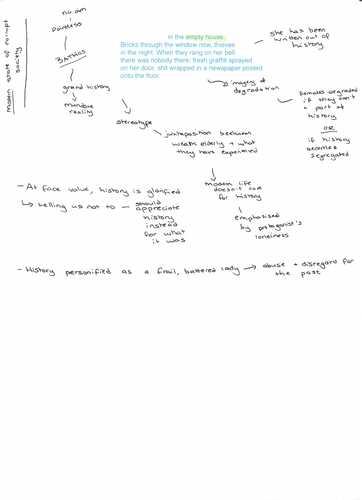 modern state of corrupt
society
no aim
pointless
BATHOS
grand history
mundane
reality
in the empty house.
Bricks through the window now, thieves
in the night. When they rang on her bell
there was nobody there; fresh graffiti sprayed
on her door, shit wrapped in a newspaper posted
onto the floor.
she has been
written out of
history
imagery of
degradation
females degraded
if they don't
part of
history
OR
if history
becomes
segregated
stereotype
juxtaposition between
weak elderly + what
they have experienced
modern life
doesn't care
for history
Emphasised
by protagonist's
loneliness
- At face value, history is glorified
telling us not to - should
appreciate
history
instead
for what
it was
- History personified as a frail, battered lady → abuse + disregard for
the past